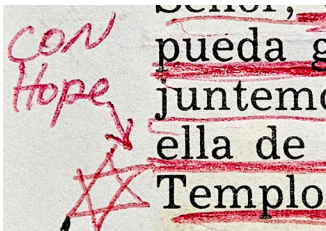 CON
Hope
Señor,
pueda g
juntemo
ella de
Templo